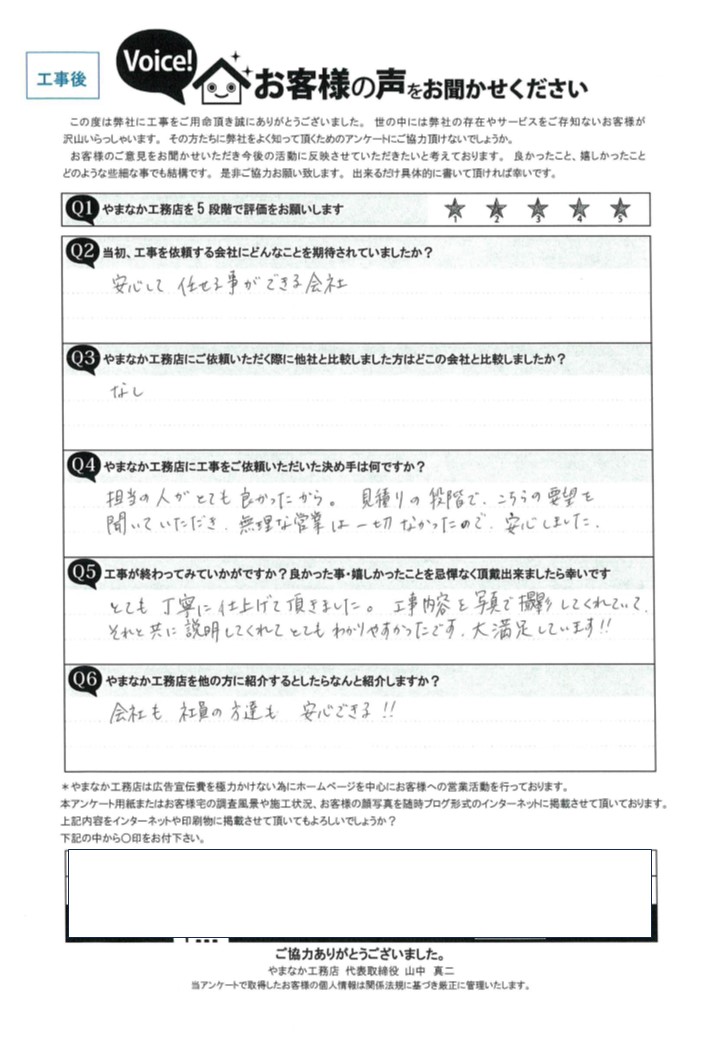 工事後
Voice!
お客様の声をお聞かせください
この度は弊社に工事をご用命頂き誠にありがとうございました。 世の中には弊社の存在やサービスをご存知ないお客様が
沢山いらっしゃいます。 その方たちに弊社をよく知って頂くためのアンケートにご協力頂けないでしょうか。
お客様のご意見をお聞かせいただき今後の活動に反映させていただきたいと考えております。 良かったこと、嬉しかったこと
どのような些細な事でも結構です。 是非ご協力お願い致します。 出来るだけ具体的に書いて頂ければ幸いです。
Q1 やまなか工務店を 5 段階で評価をお願いします
1 2 3 4 5
Q2 当初、工事を依頼する会社にどんなことを期待されていましたか？
安心して 任せる事ができる会社
Q3 やまなか工務店にご依頼いただく際に他社と比較しました方はどこの会社と比較しましたか？
なし
Q4 やまなか工務店に工事をご依頼いただいた決め手は何ですか？
担当の人がとても良かったから。 見積りの段階で、こちらの要望を
聞いていただき、無理な営業は一切なかったので、安心しました。
Q5 工事が終わってみていかがですか？良かった事・嬉しかったことを忌憚なく頂戴出来ましたら幸いです
とても丁寧に仕上げて頂きました。 工事内容を写真で撮影してくれていて、
それと共に説明してくれてとてもわかりやすかったです。大満足しています!!
Q6 やまなか工務店を他の方に紹介するとしたらなんと紹介しますか？
会社も 社員の方達も 安心できる!!
＊やまなか工務店は広告宣伝費を極力かけない為にホームページを中心にお客様への営業活動を行っております。
本アンケート用紙またはお客様宅の調査風景や施工状況、お客様の顔写真を随時ブログ形式のインターネットに掲載させて頂いております。
上記内容をインターネットや印刷物に掲載させて頂いてもよろしいでしょうか？
下記の中から〇印をお付下さい。
ご協力ありがとうございました。
やまなか工務店 代表取締役 山中 真二
当アンケートで取得したお客様の個人情報は関係法規に基づき厳正に管理いたします。